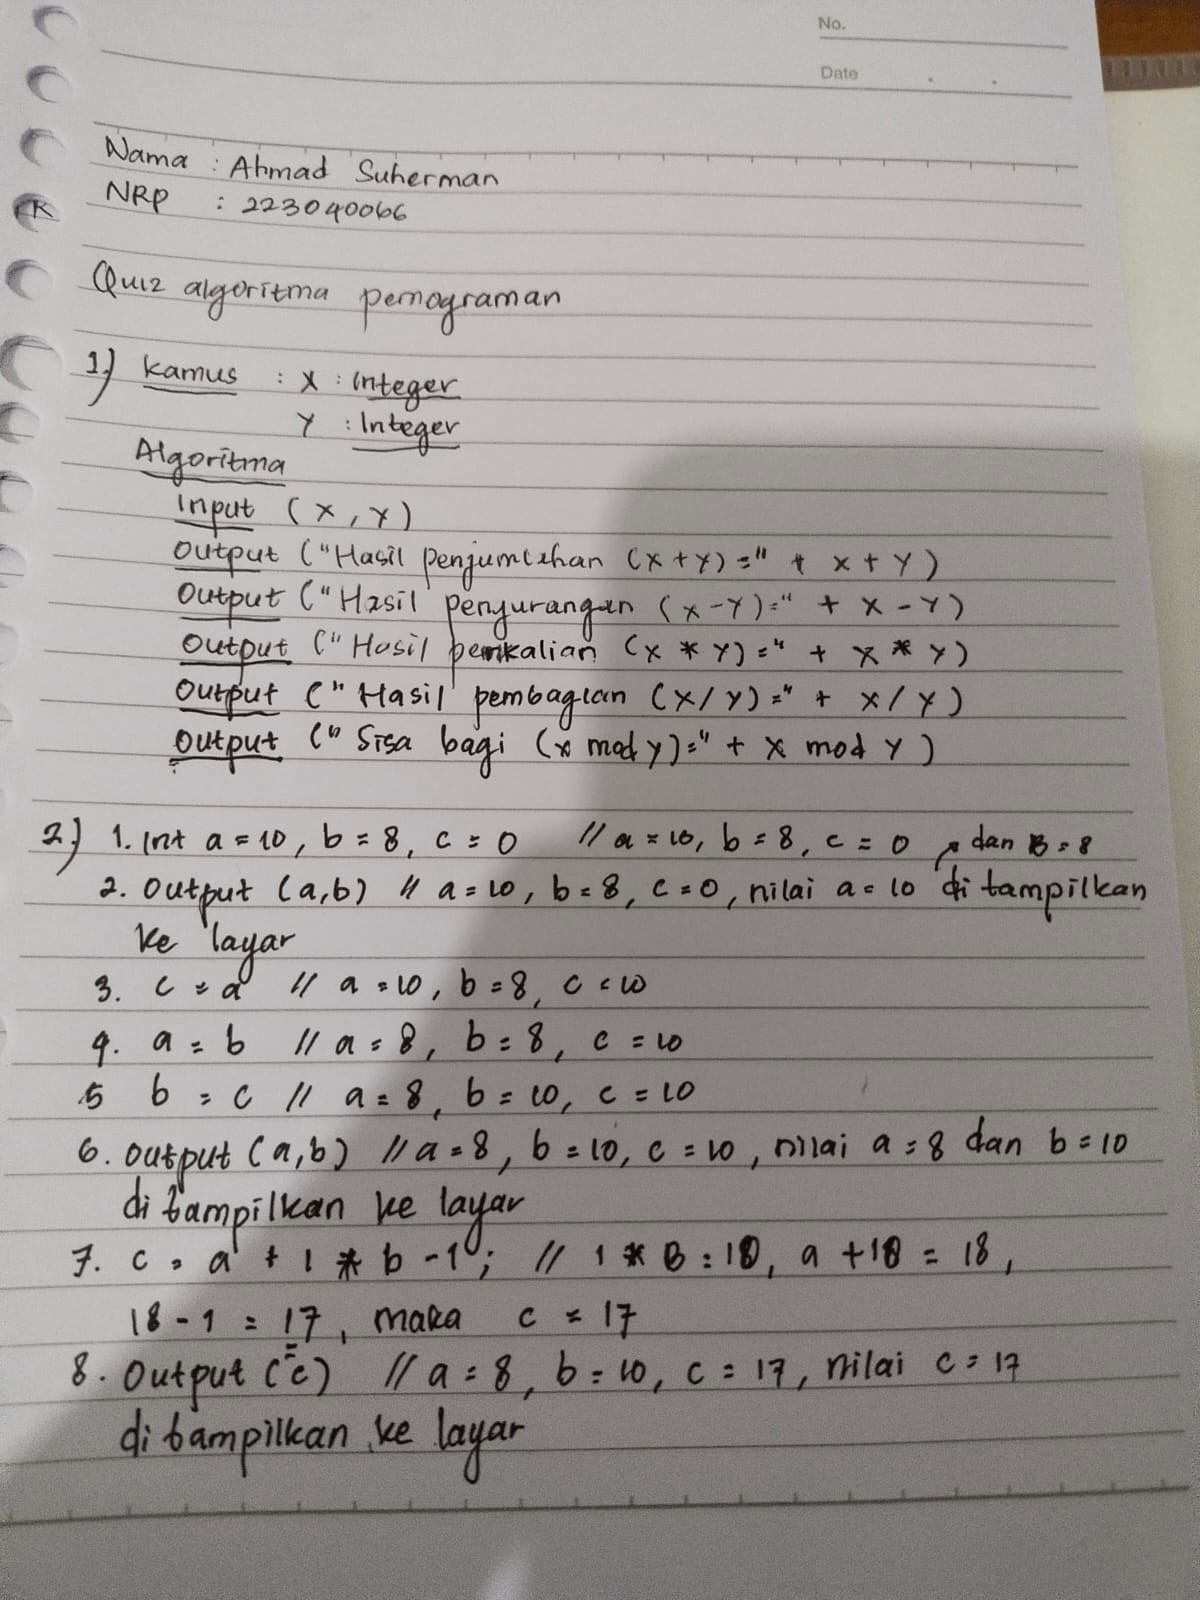 No.
Date
Nama : Ahmad Suherman
NRP : 223040066
Quiz algoritma pemograman
1.) Kamus : X : Integer
Y : Integer
Algoritma
Input (X, Y)
Output ("Hasil penjumlahan (X+Y)=" + X+Y)
Output ("Hasil pengurangan (X-Y)=" + X-Y)
Output ("Hasil perkalian (X * Y)=" + X * Y)
Output ("Hasil pembagian (X/Y)=" + X/Y)
Output ("Sisa bagi (X mod Y)=" + X mod Y)
2.) 1. Int a = 10, b = 8, c = 0 // a = 10, b = 8, c = 0 dan B = 8
2. Output (a,b) // a = 10, b = 8, c = 0, nilai a = 10 di tampilkan
ke layar
3. c = a // a = 10, b = 8, c = 10
4. a = b // a = 8, b = 8, c = 10
5 b = c // a = 8, b = 10, c = 10
6. Output (a,b) // a = 8, b = 10, c = 10, nilai a = 8 dan b = 10
di tampilkan ke layar
7. c = a + 1 * b - 1; // 1 * B = 10, a + 10 = 18,
18 - 1 = 17, maka c = 17
8. Output (c) // a = 8, b = 10, c = 17, nilai c = 17
di tampilkan ke layar